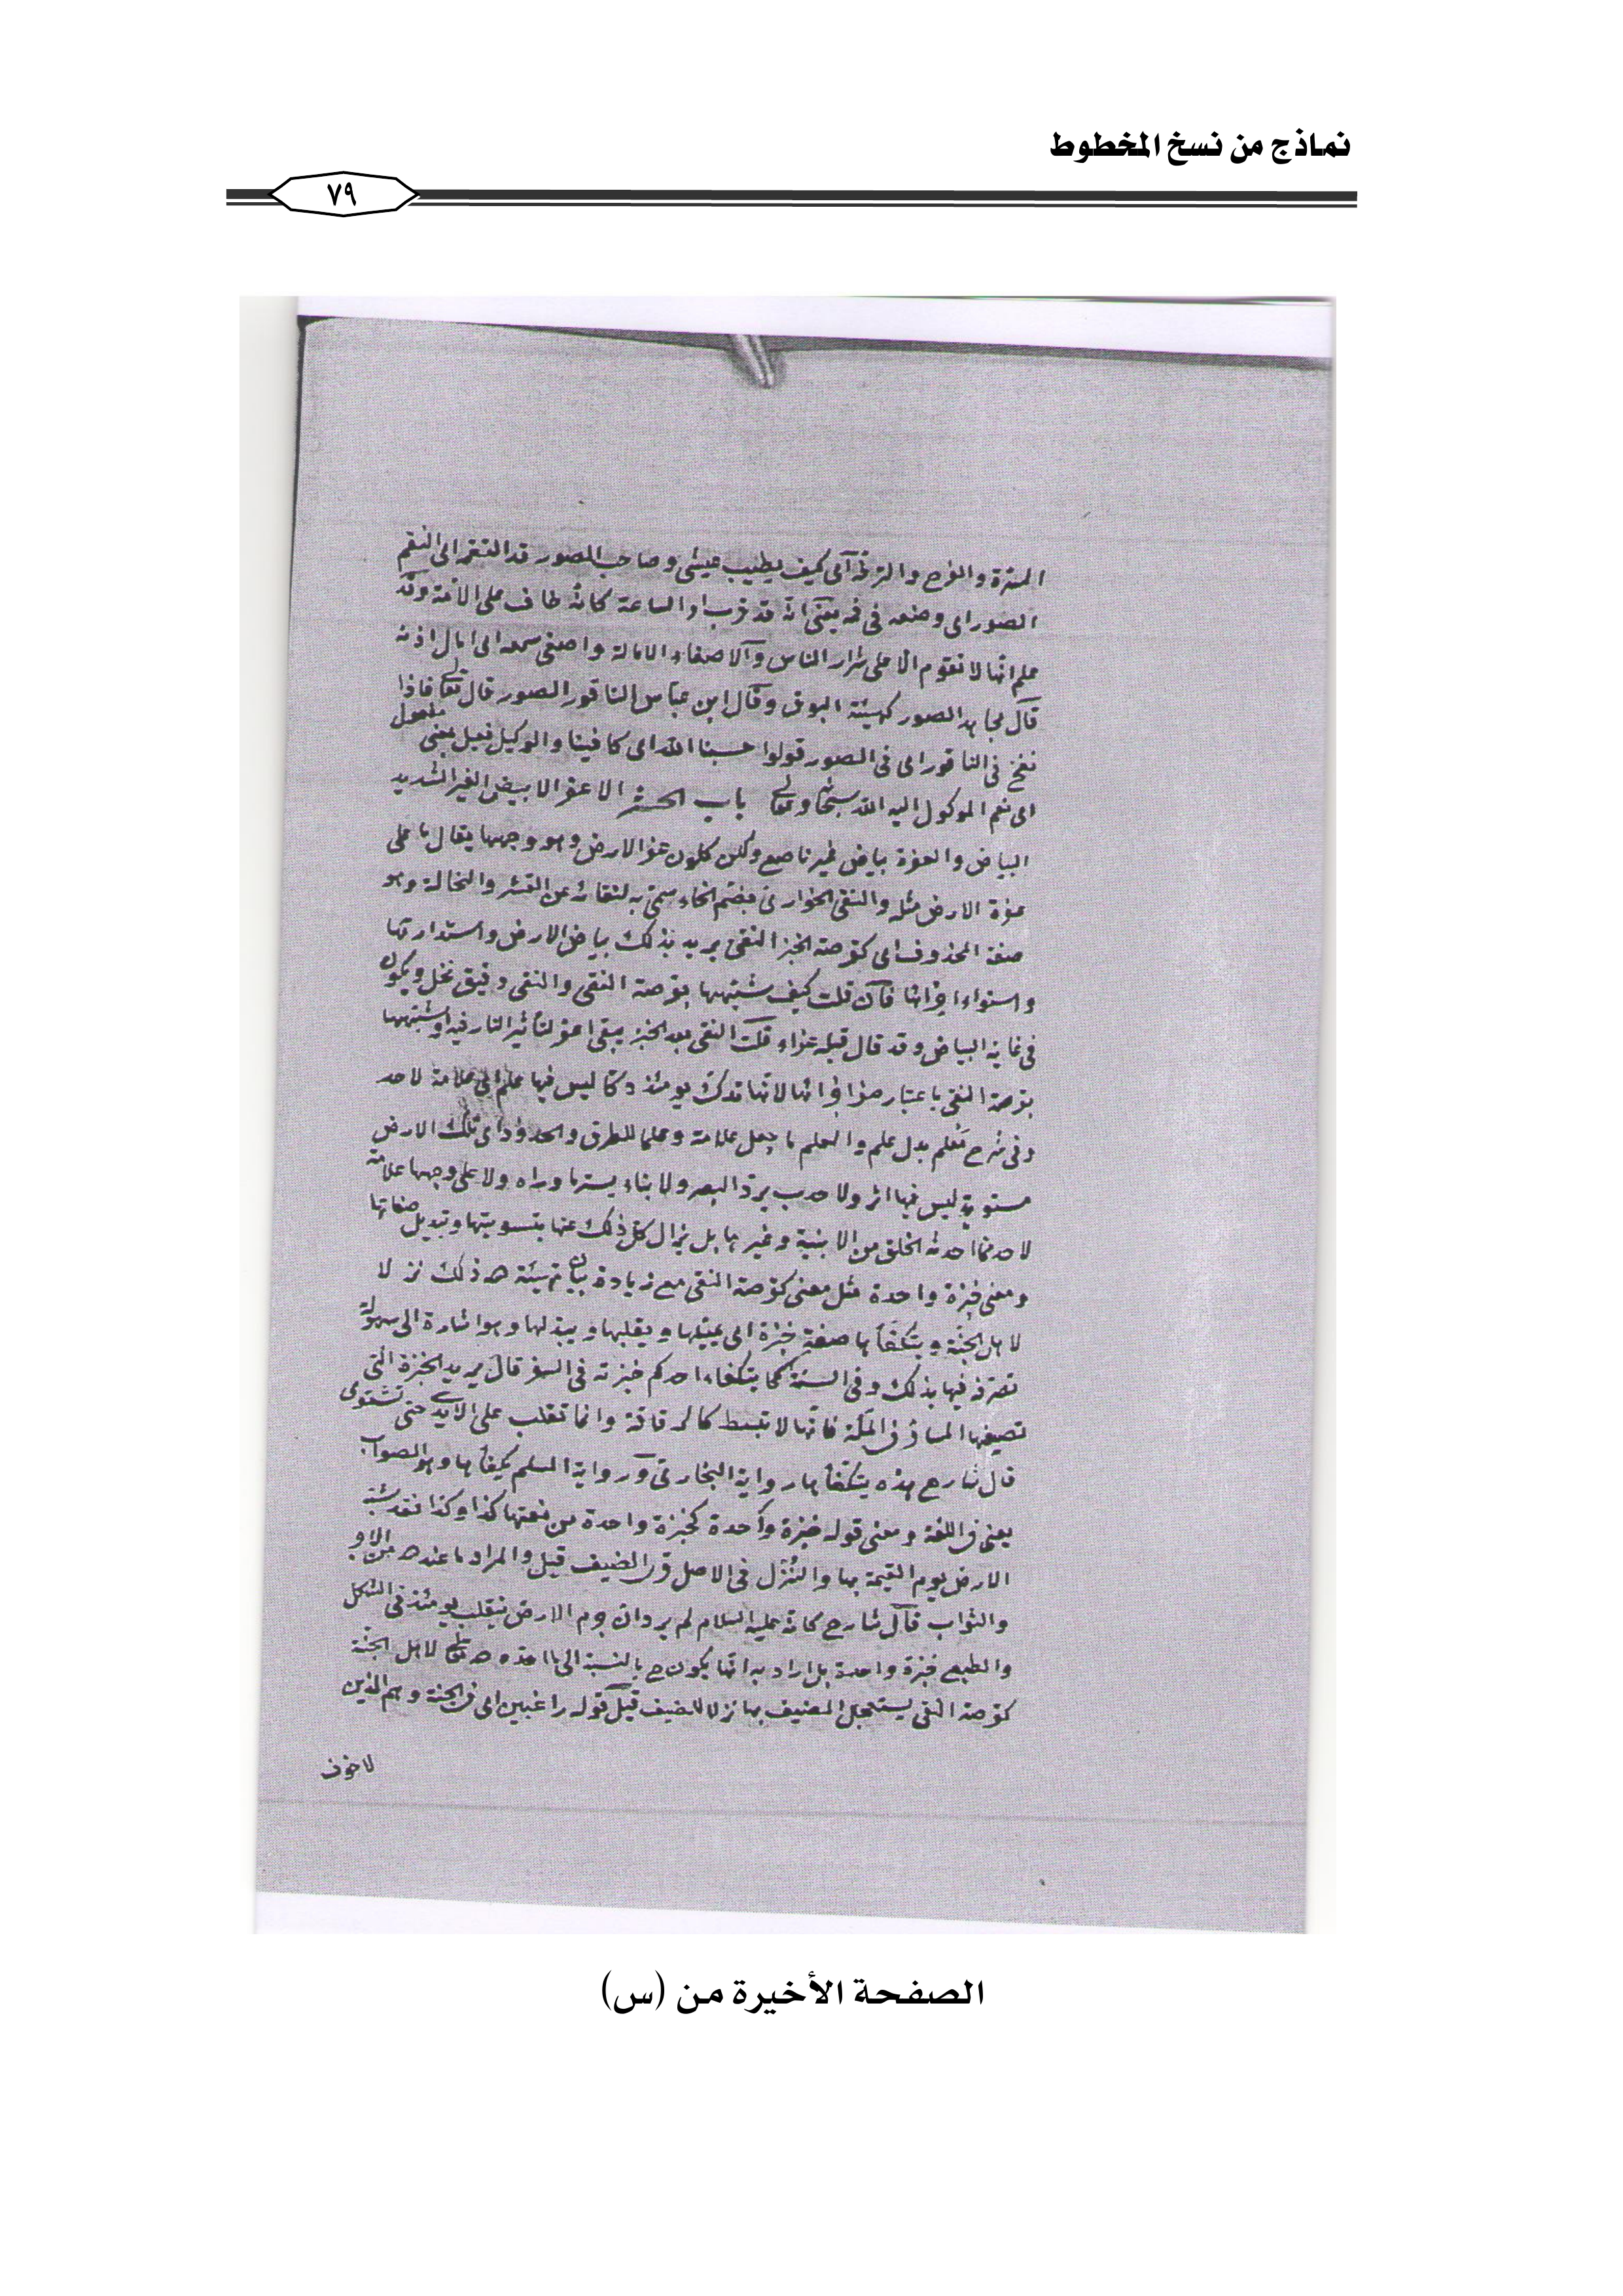 نماذج من نسخ المخطوط
٧٩
المسرة والفرح والترفه آى كيف يطيب عيشى وصاحب الصور قد التقم اى التقم
الصور اى وضعه فى فمه يعنى انه قد قرب امر الساعة كانه طاف على الامة وقد
علم انها لا تقوم الا على شرار الناس والاصغاء الامالة واصغى سمعه اى امال اذنه
قال مجاهد الصور كهيئة البوق وقال ابن عباس الناقور الصور قال تعالى فاذا
نفخ فى الناقور اى فى الصور قولوا حسبنا الله اى كافينا والوكيل فعيل بمعنى مفعول
اى نعم الموكول اليه الله سبحانه وتعالى باب الحشر الاعفر الابيض الغير الشديد
البياض والعفرة بياض غير ناصع ولكن كلون عفر الارض وهو وجهها يقال ما على
عفرة الارض مثله والنقى الحوارى بضم الحاء سمى به لنقائه عن القشر والنخالة وهو
صفة المحذوف اى كقرصة الخبز النقى يريد بذلك بياض الارض واستدارتها
واستواء اجزائها فان قلت كيف شبهها بقرصة النقى والنقى دقيق نخل ويكون
فى غاية البياض وقد قال قبله عفراء قلت النقى بعد الخبز يبقى اعفر لتأثير النار فيه او شبهها
بقرصة النقى باعتبار اجزائها لانها تدك يومئذ دكا ليس فيها علم اى علامة لاحد
وفى شرح معلم بدل علم والمعلم ما جعل علامة وعلما للطرق والحدود اى تلك الارض
مستوية ليس فيها اثر ولا حدب يرد البصر ولا بناء يستر ما وراه ولا على وجهها علامة
لاحد مما احدثه الخلق من الابنية وغيرها بل يزال كل ذلك عنها بتسويتها وتبديل صفاتها
ومعنى خبزة واحدة مثل معنى كقرصة النقى مع زيادة بيان تهيئة هـ ذلك نزلا
لاهل الجنة ويتكفأها صفة خبزة اى يميلها ويقلبها ويبدلها وهو اشارة الى سهولة
تصرفه فيها بذلك وفى السنة كما يتكفاء احدكم خبزته فى السفر قال يريد الخبزة التى
تصيفها المسافر فى الملة فانها لا تبسط كالرقاقة وانما تقلب على الايدى حتى تستوى
قال شارح هذه يتكفأها رواية البخارى ورواية المسلم يكفأها وهو الصواب
يعنى فى اللغة ومعنى قوله خبزة واحدة كخبزة واحدة من نعتها كذا وكذا فقد شبه
الارض يوم القيمة بها والنزل فى الاصل قرى الضيف قيل والمراد ما عنده من الاجر
والثواب قال شارح كانه عليه السلام لم يرد ان جرم الارض ينقلب يومئذ فى الشكل
والطبع خبزة واحدة بل اراد به انها يكون ح بالنسبة الى ما اعده هـ تعالى لاهل الجنة
كقرصة النقى يستعجل المضيف بها نزلا للضيف قيل قوله راغبين اى فى الجنة وهم الذين
لا خوف
الصفحة الأخيرة من (س)